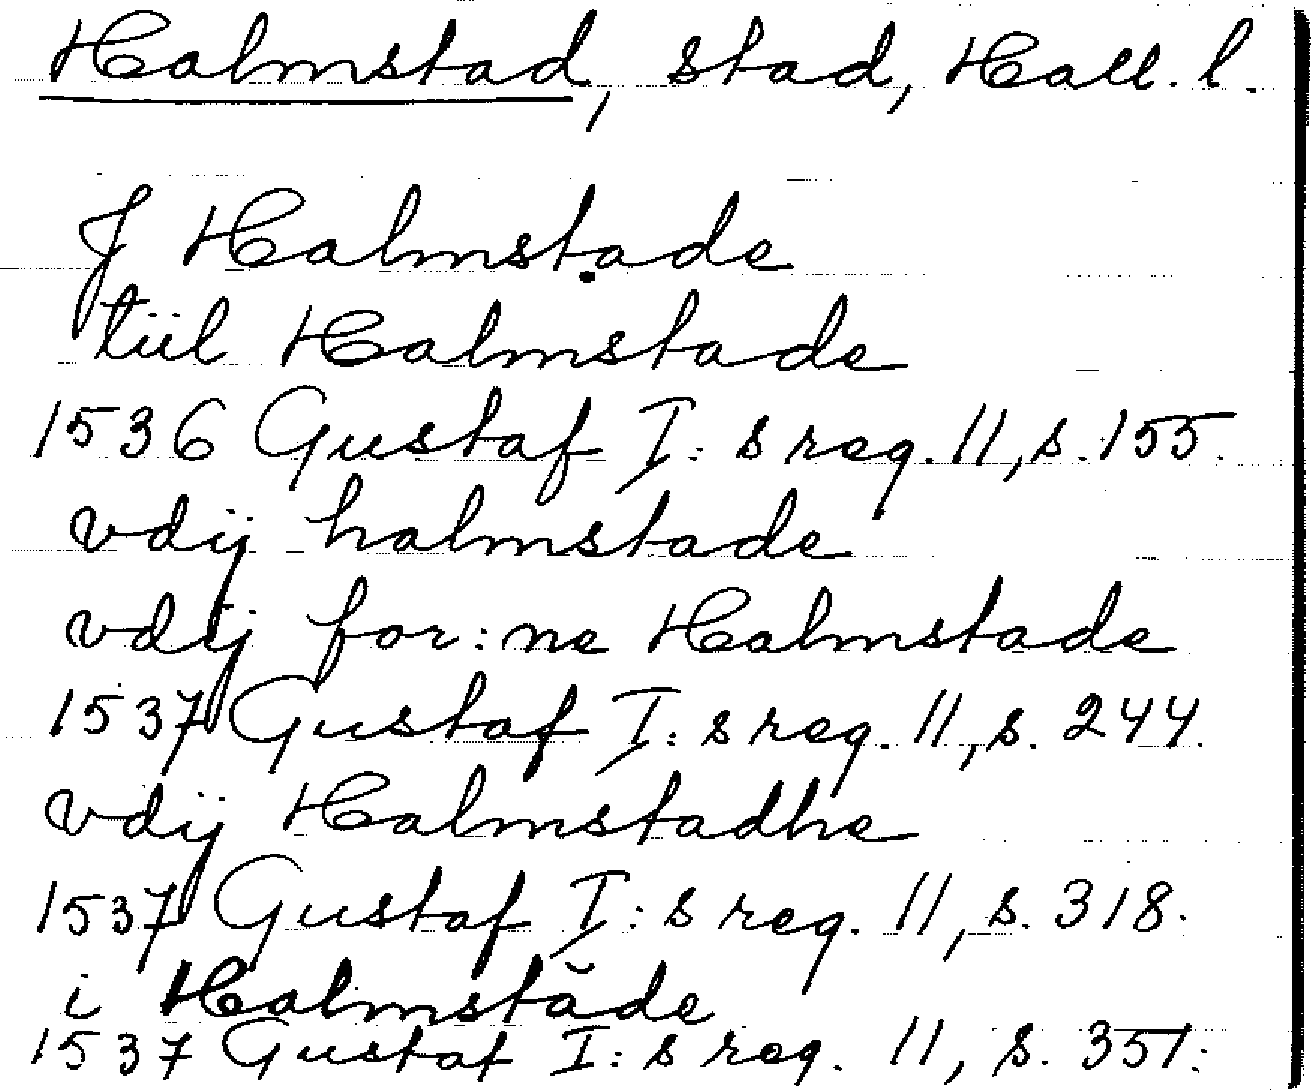 Halmstad, stad, Hall. l.
J Halmstade
tiil Halmstade
1536 Gustaf I:s reg. 11, s. 155.
vdij halmstade
vdij for:ne Halmstade
1537 Gustaf I:s reg. 11, s. 244.
vdij Halmstadhe
1537 Gustaf I:s reg. 11, s. 318.
i Halmstăde
1537 Gustaf I:s reg. 11, s. 351.